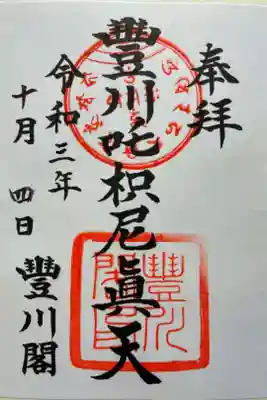 奉拝
豐川吒枳尼眞天
令和三年
十月四日
豐川閣